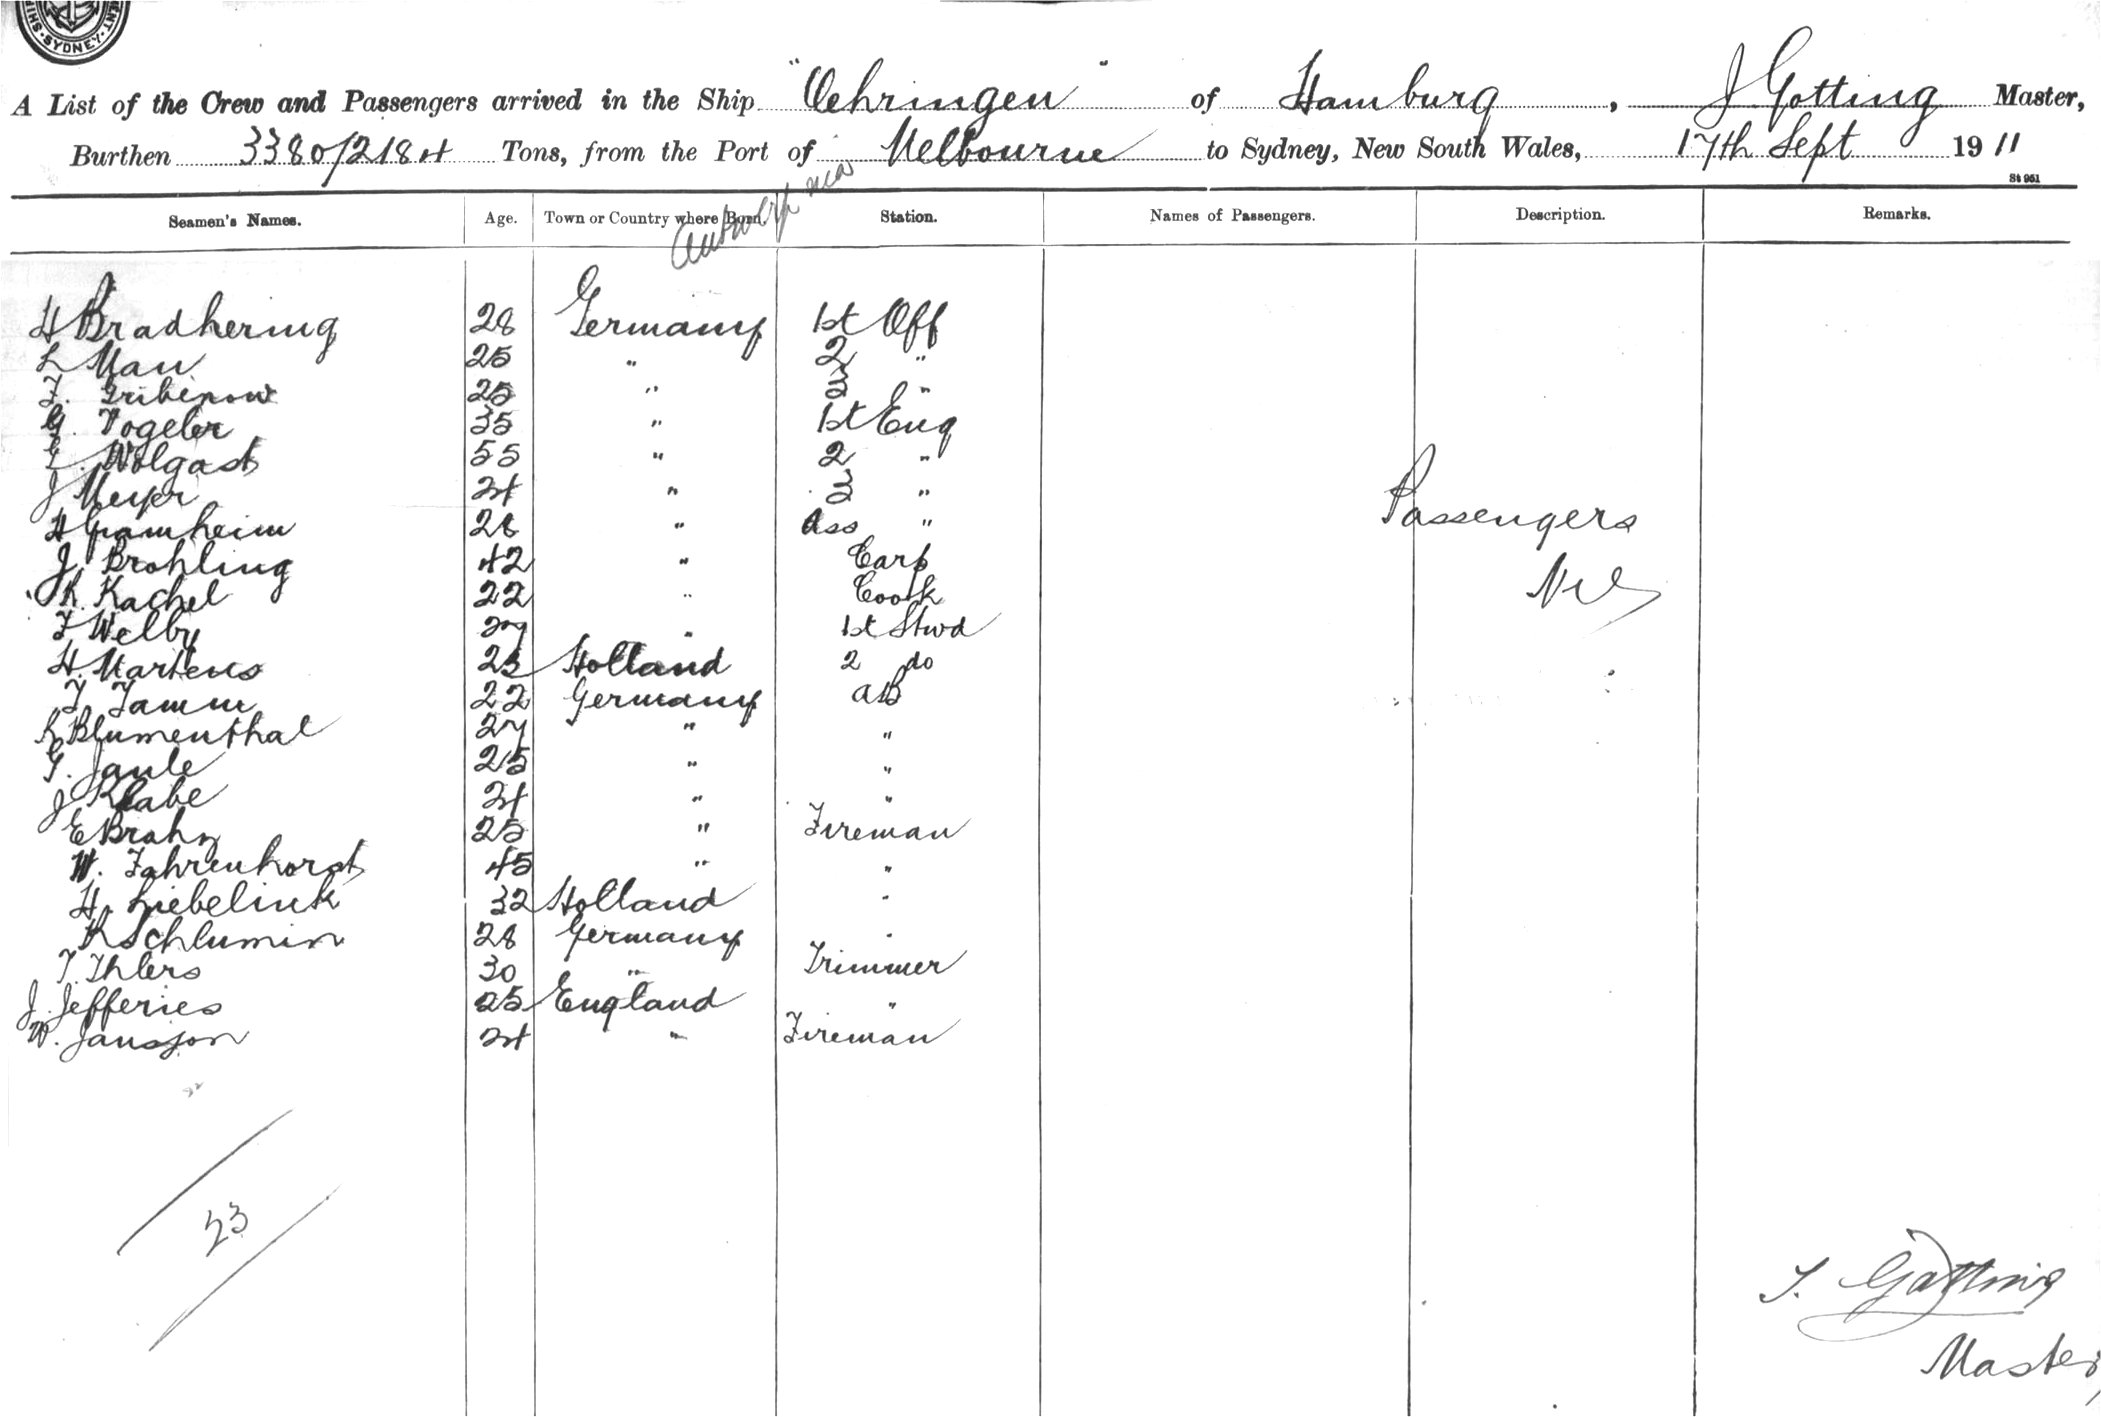 SYDNEY
A List of the Crew and Passengers arrived in the Ship "Oehringen" of Hamburg, J Gotting Master,
Burthen 3380/2184 Tons, from the Port of Melbourne to Sydney, New South Wales, 17th Sept 1911
St 951
Seamen's Names. Age. Town or Country where Born. Station. Names of Passengers. Description. Remarks.
H Bradhering 28 Germany 1st Off
L Mau 25 " 2 "
25 " 3 "
G. Vogeler 35 " 1st Eng
E. Wolgast 55 " 2 "
J Meyer 24 " 3 "
H Gramheim 28 " Ass "
Passengers
J Brohling 42 " Carp
K. Kachel 22 " Cook
Nil
F Welby 27 " 1st Stwd
H. Martens 23 Holland 2 do
T Tamm 22 Germany AB
R Blumenthal 27 " "
G. Jaule 25 " "
J Klabe 24 " "
E Brahn 25 " Fireman
W. Fahrenhorst 45 " "
H. Liebelink 32 Holland "
K Schlumin 28 Germany "
T. Ihlers 30 " Trimmer
J. Jefferies 25 England "
W. Jansson 24 " Fireman
23
J. Gotting
Master